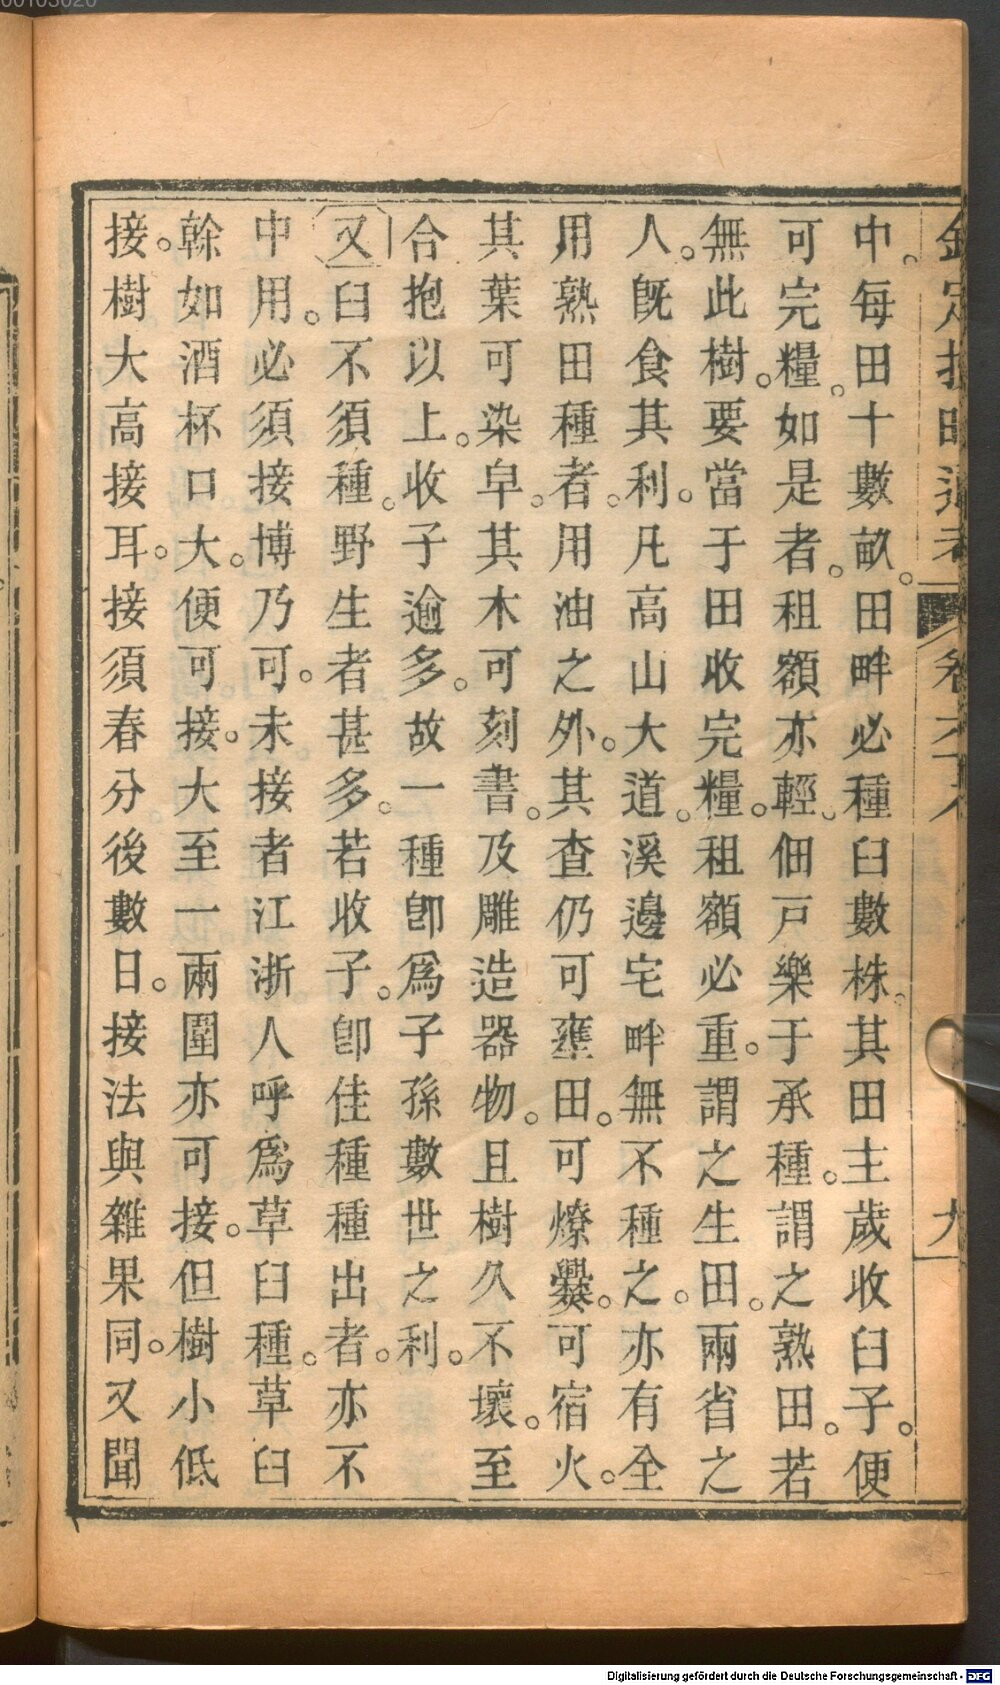 中。每田十數畝。田畔必種臼數株。其田主歲收臼子。便
可完糧。如是者。租額亦輕。佃戸樂于承種。謂之熟田。若
無此樹。要當于田收完糧。租額必重。謂之生田。兩省之
人。旣食其利。凡高山大道。溪邊宅畔無不種之。亦有全
用熟田種者。用油之外。其查仍可壅田。可燎爨。可宿火。
其葉可染皁。其木可刻書。及雕造器物。且樹久不壞。至
合抱以上。收子逾多。故一種卽爲子孫數世之利。
又曰不須種。野生者甚多。若收子。卽佳種種出者。亦不
中用。必須接博乃可。未接者江浙人呼爲草臼種。草臼
榦如酒杯口大。便可接。大至一兩圍亦可接。但樹小低
接。樹大高接耳。接須春分後數日。接法與雜果同。又聞
Digitalisierung gefördert durch die Deutsche Forschungsgemeinschaft - DFG